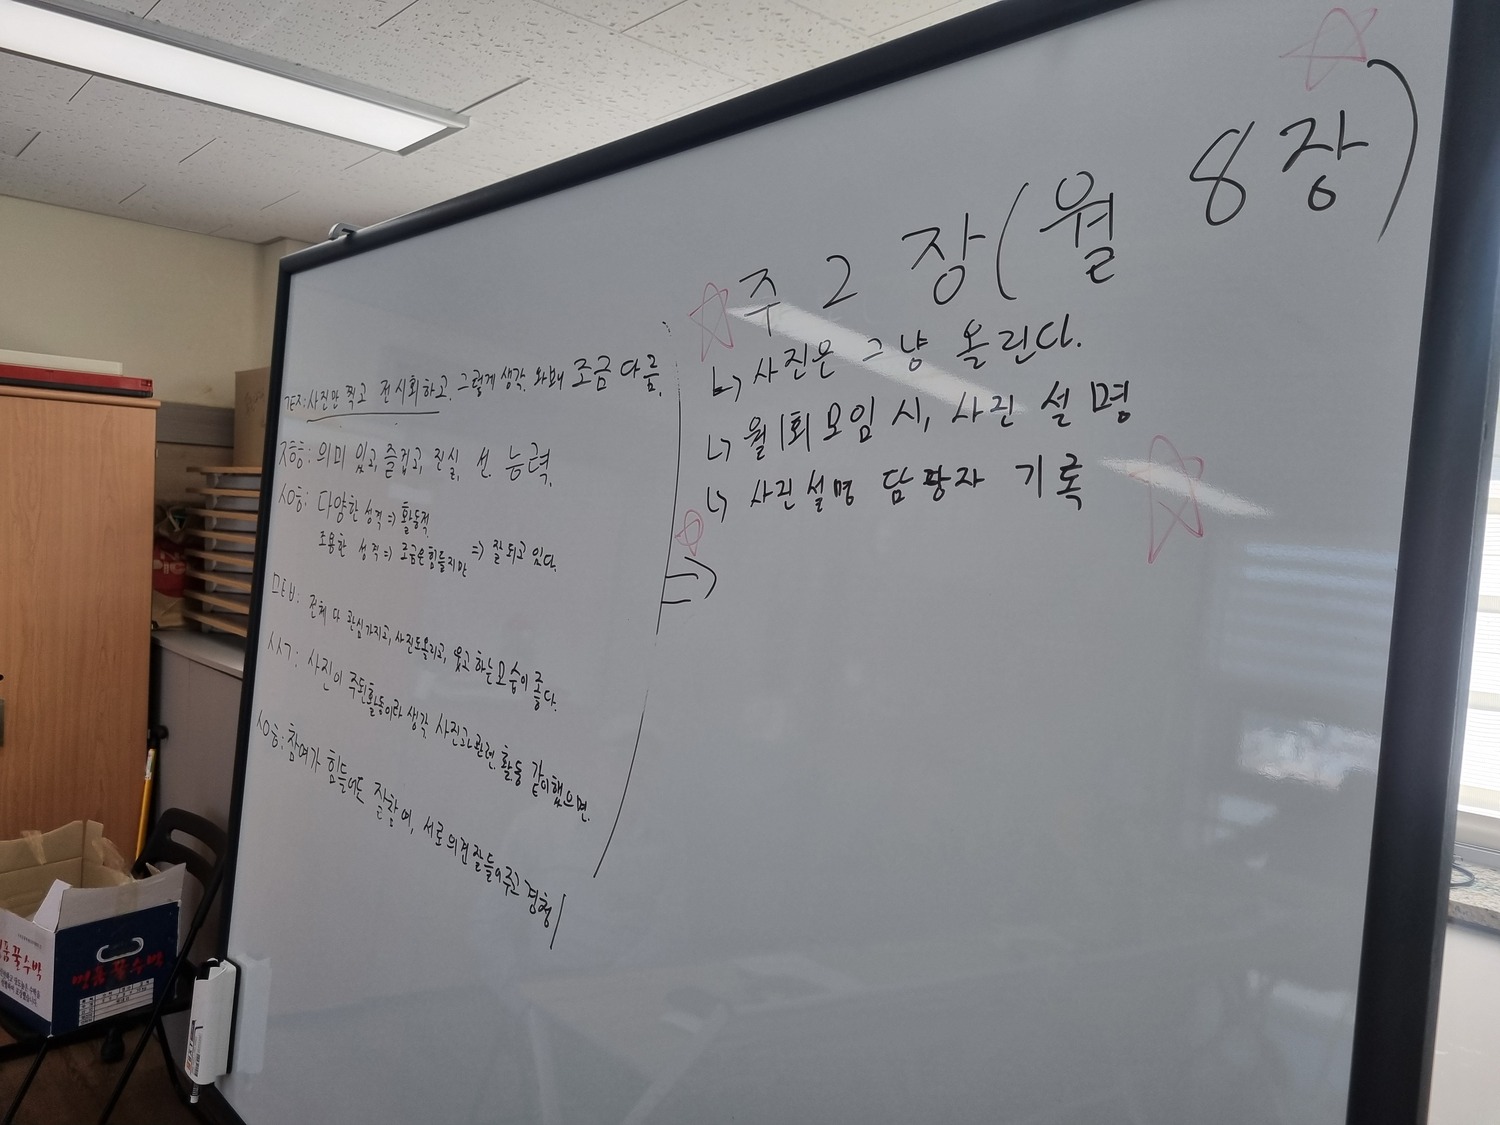 ㄱㅌㅈ: 사진만 찍고 전시회하고. 그렇게 생각. 와봐 조금 다름.
ㅈㅎㅎ: 의미 있고, 즐겁고, 진실, 선 능력.
ㅅㅇㅎ: 다양한 성격 => 활동적
조용한 성격 => 조금은 힘들지만 => 잘 되고 있다.
ㅁㅌㅂ: 전체 다 관심가지고, 사진도올리고, 웃고 하는 모습이 좋다.
ㅅㅅㄱ: 사진이 주된활동이라 생각 사진과관련. 활동 같이했으면.
ㅅㅇㅎ: 참여가 힘들어도 잘참여, 서로의견 잘들어주고 경청
주 2 장(월 8장)
↳ 사진은 그냥 올린다.
↳ 월1회 모임 시, 사진 설명
↳ 사진설명 담당자 기록
⇒
명품꿀수박
명품꿀수박